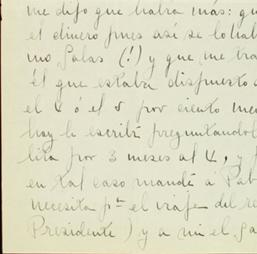 me dijo que habra más: que
el dinero pues así se lo
mo Salas (!) y que me
él que estaba dispuesto
el 4 ó el 5 por ciento
hoy le escribí
por 3 meses al 4, y
en tal caso mandé á
necesita pª el viaje del
Presidente) y a mi el